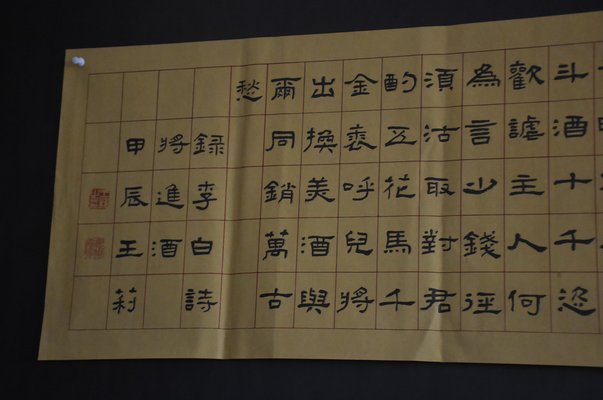 斗酒十千恣
歡謔主人何
為言少錢徑
須沽取對君
酌五花馬千
金裘呼兒將
出換美酒與
爾同銷萬古
愁
録李白詩
將進酒
甲辰王莉